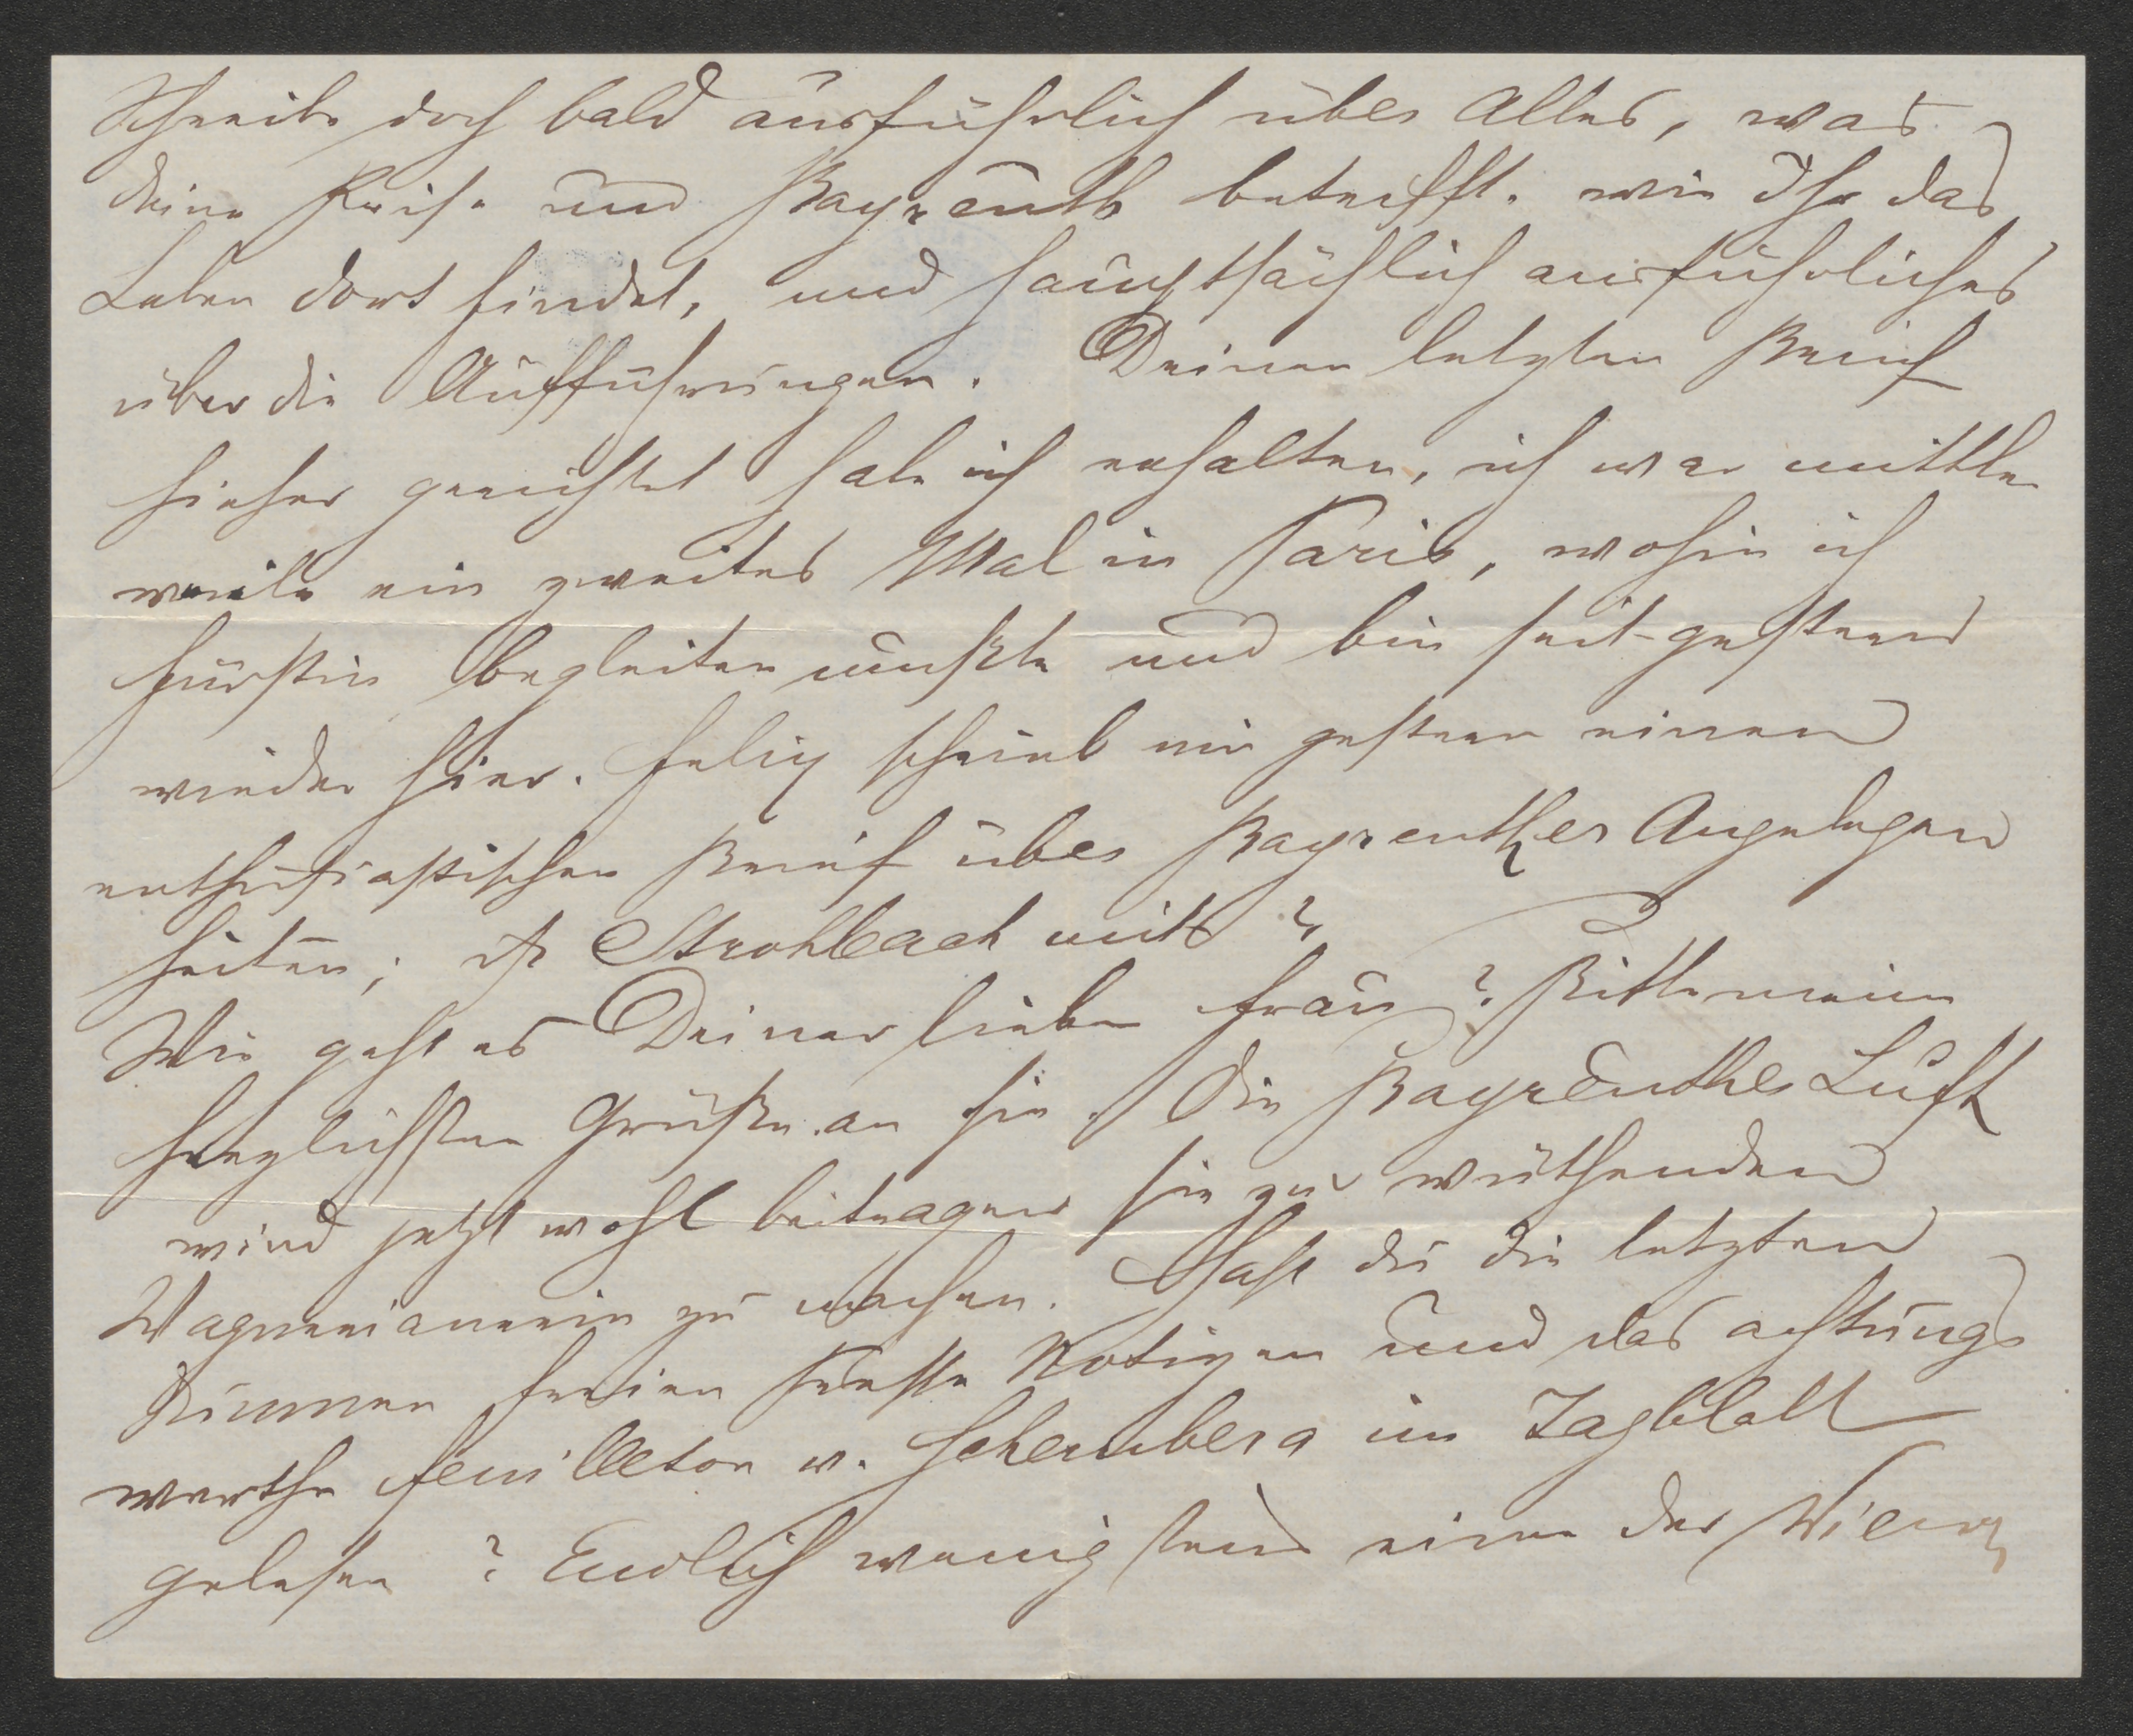 Schreibe doch bald ausführlich über Alles, was
Deine Reise und Bayreuth betrifft. wie Ihr das
Leben dort findet, und hauptsächlich ausführliches
über die Aufführungen. Deinen letzten Brief
hieher gerichtet habe ich erhalten, ich war mittler
weile ein zweites Mal in Paris, wohin ich
Fürstin begleiten mußte und bin seit gestern
wieder hier. Felix schrieb mir gestern einen
enthusiastischen Brief über Bayreuther Angelegen
heiten; ist Strohbach mit?
Wie geht es Deiner lieben Frau? Bitte meine
herzlichsten Grüße an sie. Die Bayreuther Luft
wird jetzt wohl beitragen sie zu wüthenden
Wagnerianerin zu machen. Hast du die letzten
dummen freien Presse Notizen und das achtungs
werthe Feuilleton v. Schemberg im Tagblatt
gelesen? Endlich wenigstens einer der Wiener